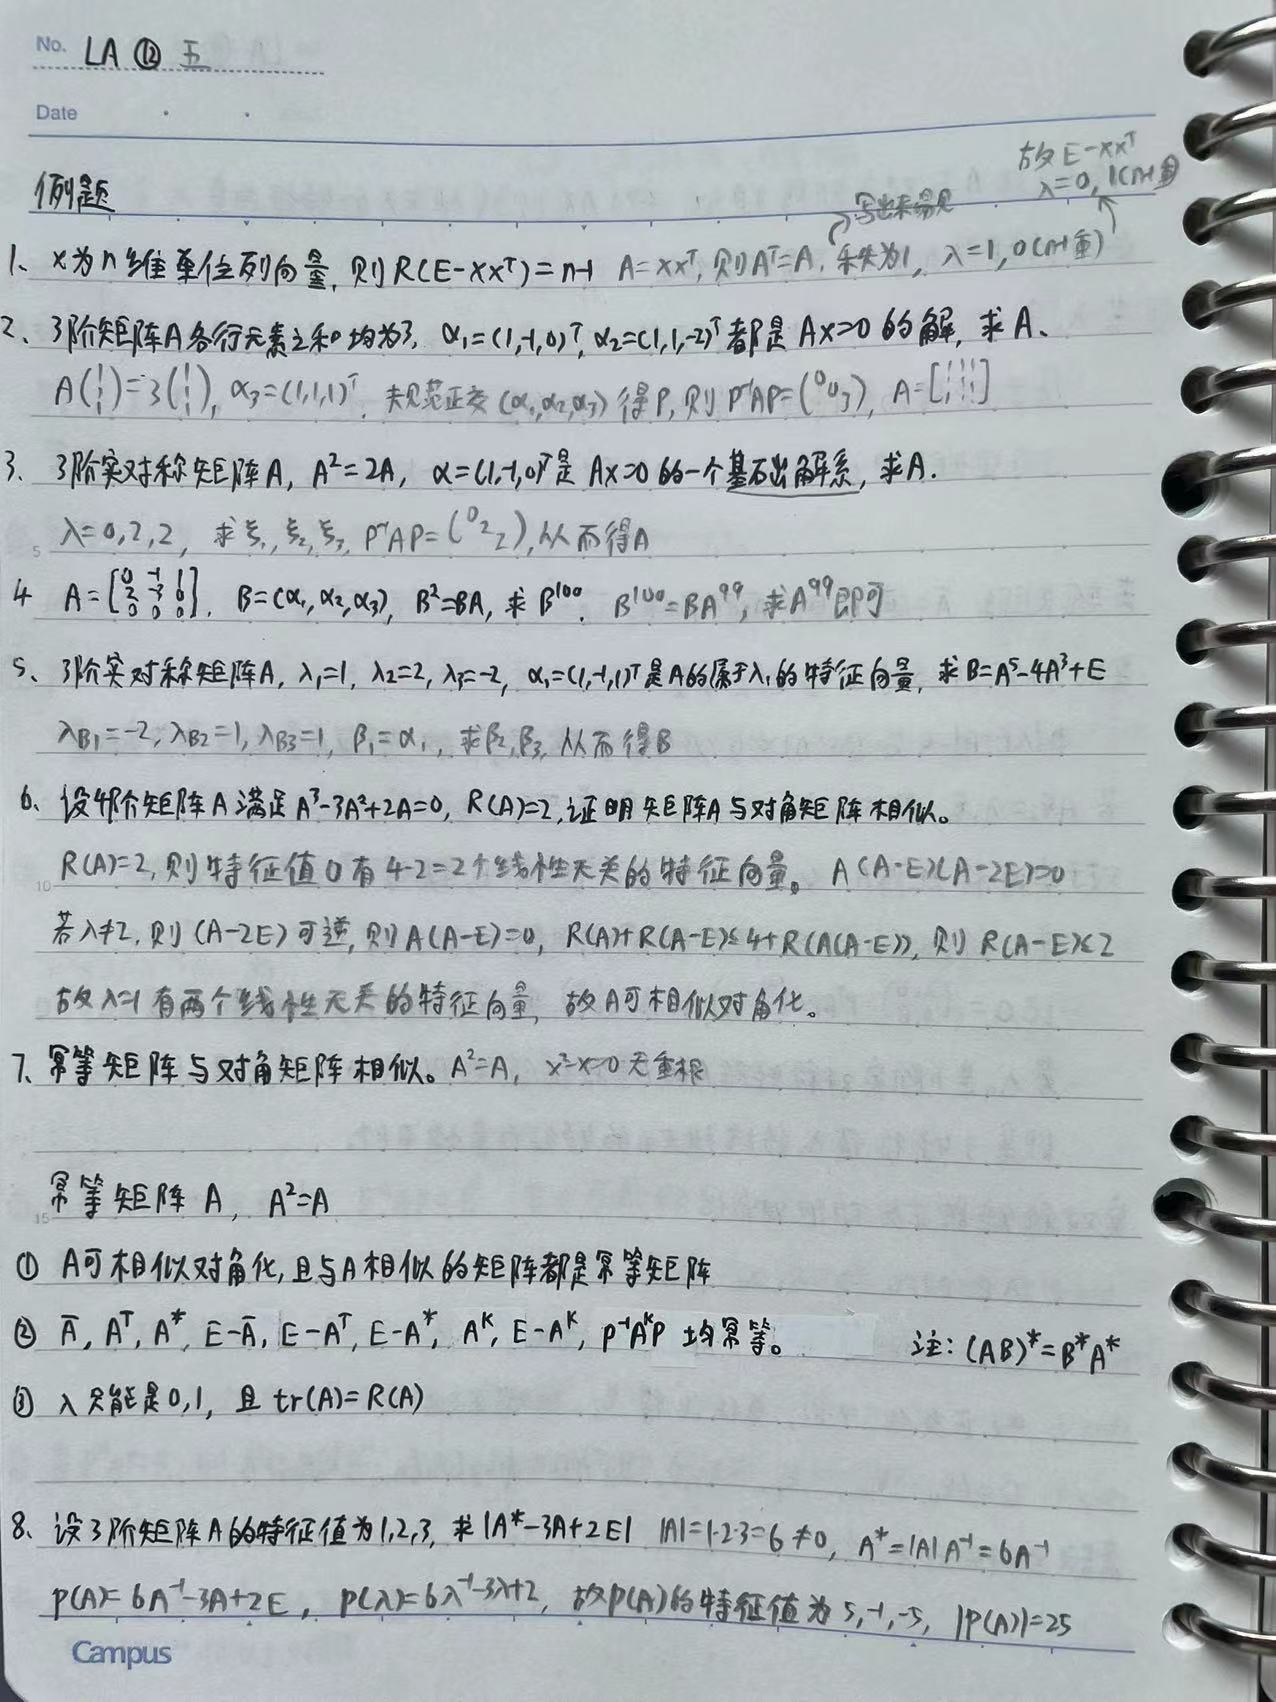 No. LA ⑫ 五
Date
故E-xxᵀ
λ=0, 1(n-1重)
例题
写出来易见
1、x为n维单位列向量, 则R(E-xxᵀ)=n-1 A=xxᵀ, 则Aᵀ=A, 秩为1, λ=1, 0(n-1重)
2、3阶矩阵A各行元素之和均为3, α₁=(1,-1,0)ᵀ, α₂=(1,1,-2)ᵀ都是Ax=0的解, 求A、
A(1 1 1)=3(1 1 1), α₃=(1,1,1)ᵀ, 规范正交(α₁,α₂,α₃)得P, 则P⁻¹AP=(0 0 3), A=[1 1 1 1 1 1 1 1 1]
3、3阶实对称矩阵A, A²=2A, α=(1,-1,0)ᵀ是Ax=0的一个基础解系, 求A.
λ=0,2,2, 求ξ₁,ξ₂,ξ₃, P⁻¹AP=(0 2 2), 从而得A
4 A=[0 -1 1 2 -3 0 0 0 0], B=(α₁,α₂,α₃), B²=BA, 求B¹⁰⁰. B¹⁰⁰=BA⁹⁹, 求A⁹⁹即可
5、3阶实对称矩阵A, λ₁=1, λ₂=2, λ₃=-2, α₁=(1,-1,1)ᵀ是A的属于λ₁的特征向量, 求B=A⁵-4A³+E
λB₁=-2, λB₂=1, λB₃=1, β₁=α₁, 求β₂,β₃, 从而得B
6、设4阶矩阵A满足A³-3A²+2A=0, R(A)=2, 证明矩阵A与对角矩阵相似。
R(A)=2, 则特征值0有4-2=2个线性无关的特征向量。A(A-E)(A-2E)=0
若λ≠2, 则(A-2E)可逆, 则A(A-E)=0, R(A)+R(A-E)≤4+R(A(A-E)), 则R(A-E)≤2
故λ=1有两个线性无关的特征向量, 故A可相似对角化。
7、幂等矩阵与对角矩阵相似。A²=A, x²-x=0无重根
幂等矩阵A, A²=A
① A可相似对角化, 且与A相似的矩阵都是幂等矩阵
② Ā, Aᵀ, A*, E-Ā, E-Aᵀ, E-A*, Aᵏ, E-Aᵏ, P⁻¹AᵏP 均幂等。 注: (AB)*=B*A*
③ λ只能是0,1, 且tr(A)=R(A)
8、设3阶矩阵A的特征值为1,2,3, 求|A*-3A+2E| |A|=1·2·3=6≠0, A*=|A|A⁻¹=6A⁻¹
P(A)=6A⁻¹-3A+2E, P(λ)=6λ⁻¹-3λ+2, 故P(A)的特征值为5,-1,-5, |P(A)|=25
Campus